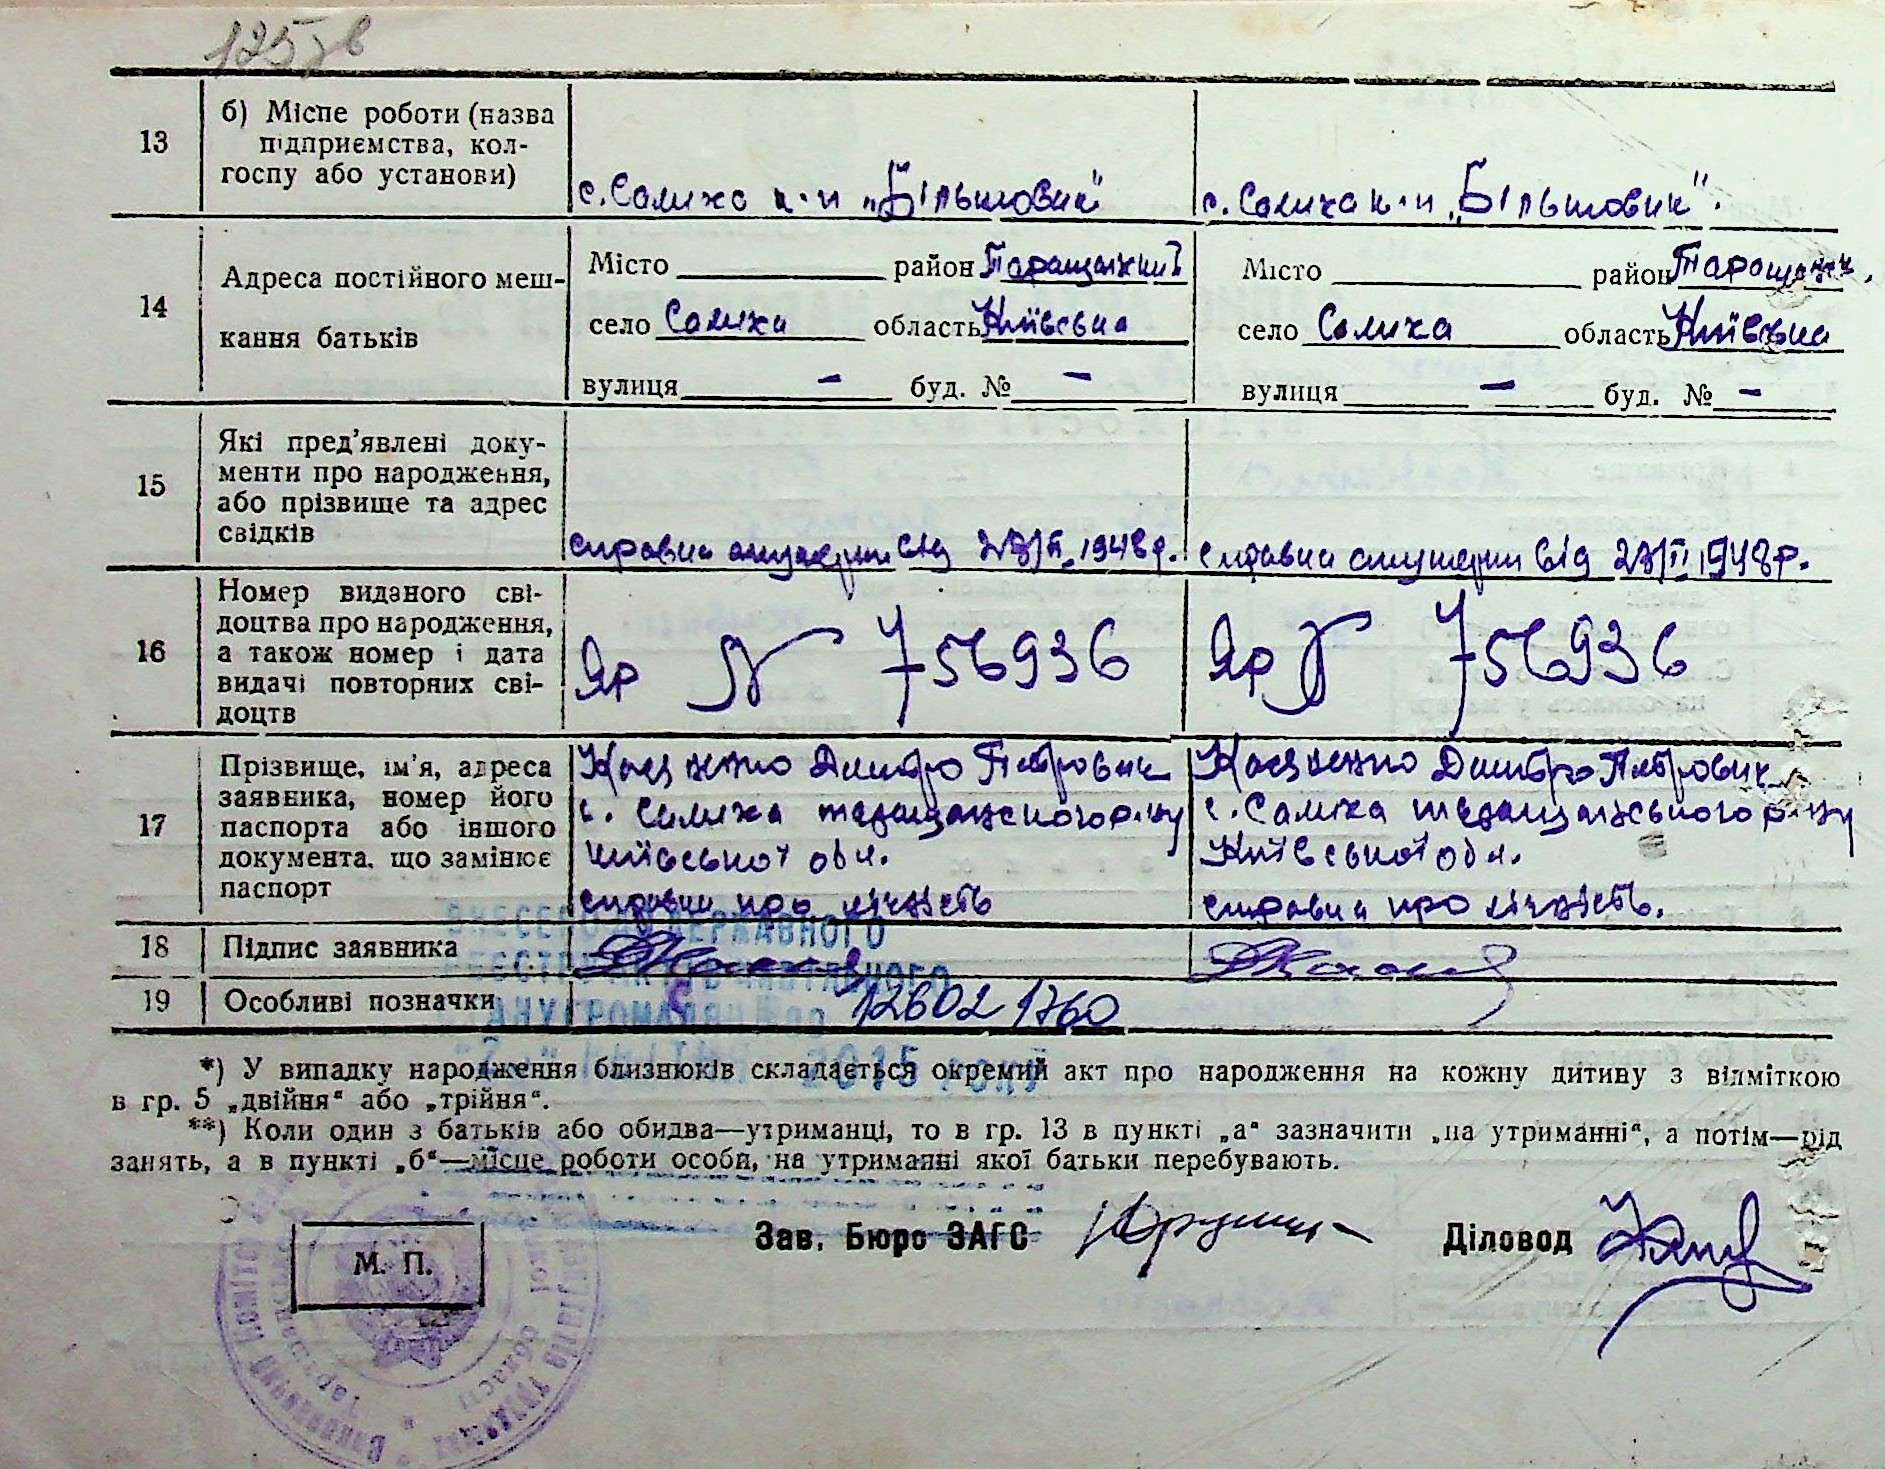 125зв
13
б) Місце роботи (назва
підприємства, кол-
госпу або установи)
с. Салиха к-п „Більшовик"
с. Салиха к-п „Більшовик".
14
Адреса постійного меш-
кання батьків
Місто район Таращанський
село Салиха область Київська
вулиця – буд. № –
Місто район Таращанськ.
село Салиха область Київська
вулиця – буд. № –
15
Які пред’явлені доку-
менти про народження,
або прізвище та адрес
свідків
справка акушерки від 29/II. 1948 р.
справка акушерки від 29/II 1948 р.
16
Номер виданого сві-
доцтва про народження,
а також номер і дата
видачі повторних сві-
доцтв
Яр № 756936
Яр № 756936
17
Прізвище, ім’я, адреса
заявника, номер його
паспорта або іншого
документа, що замінює
паспорт
Дмитро Петрович
с. Салиха таращанського р-ну
Київської обл.
справка про лічність
Дмитро Петрович
с. Салиха таращанського р-ну
Київської обл.
справка про лічність.
18
Підпис заявника
19
Особливі позначки
12602 1760
ВНЕСЕНО ДО ДЕРЖАВНОГО
РЕЄСТРУ АКТІВ ЦИВІЛЬНОГО
СТАНУ ГРОМАДЯН
2015 року
*) У випадку народження близнюків складається окремий акт про народження на кожну дитину з відміткою
в гр. 5 „двійня“ або „трійня“.
**) Коли один з батьків або обидва—утриманці, то в гр. 13 в пункті „а“ зазначити „на утриманні“, а потім—рід
занять, а в пункті „б“—місце роботи особи, на утриманні якої батьки перебувають.
М. П.
Зав. Бюро ЗАГС
Діловод